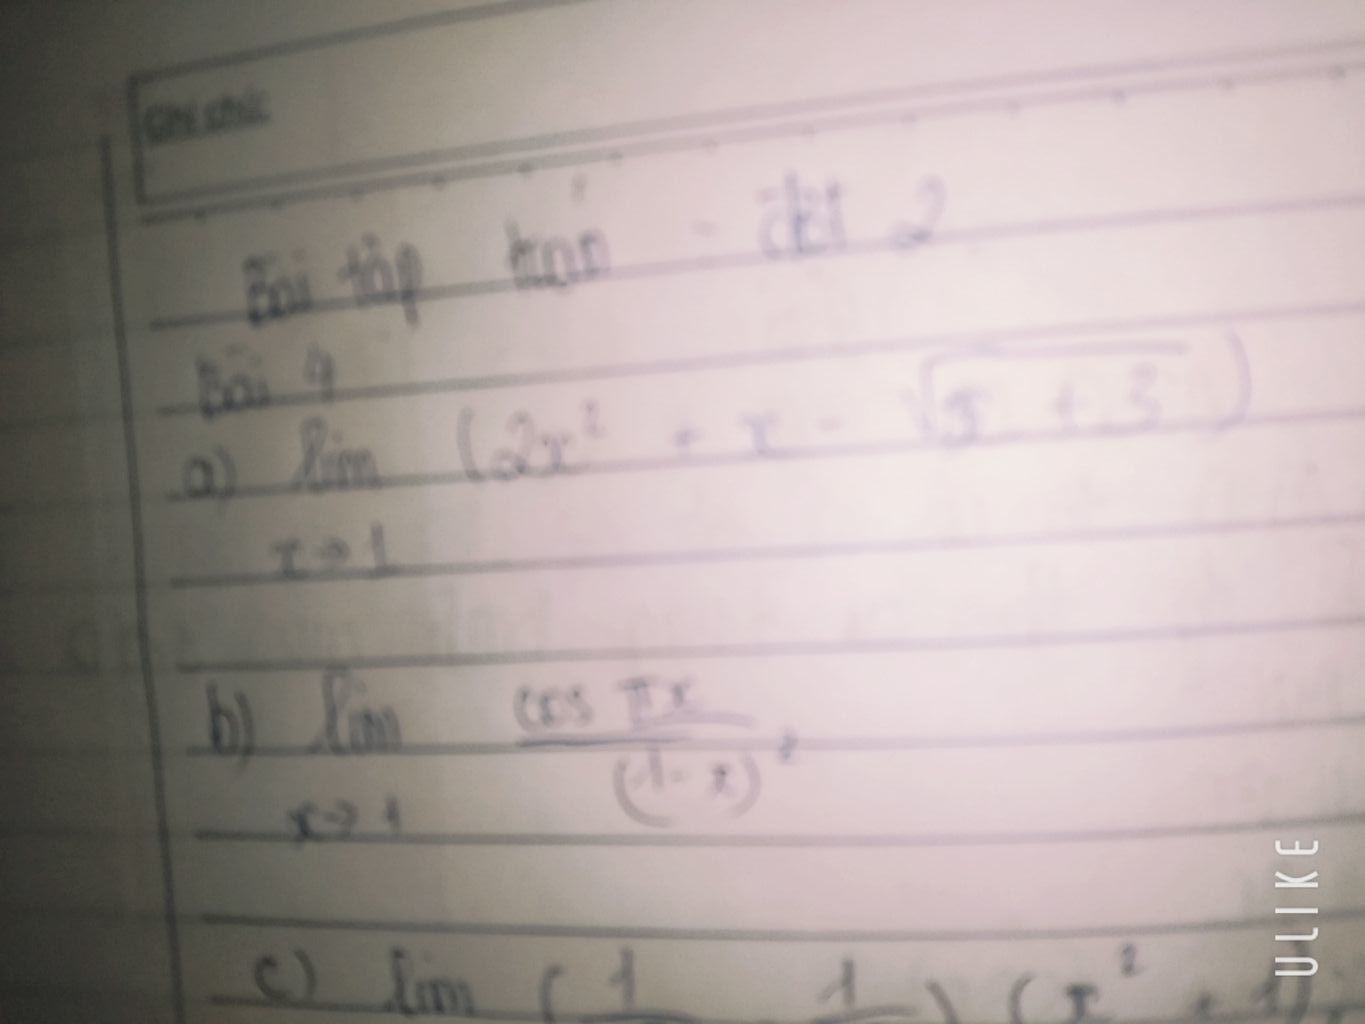 Ghi chú:
Bài tập toán - đợt 2
Bài 4
a) lim (2x² + x - √x + 3)
x → 1
b) lim cos πx / (1 - x)²
x → 1
c) lim (1 1) (x² + 1)
ULIKE